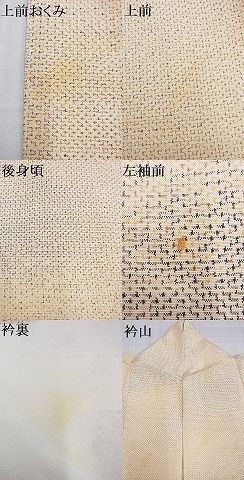 上前おくみ
上前
後身頃
左袖前
衿裏
衿山